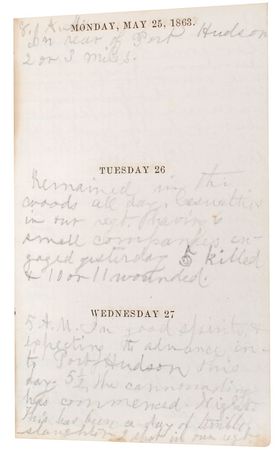 MONDAY, MAY 25, 1863.
In rear of Port Hudson
2 or 3 miles.
TUESDAY 26
Remained in the
woods all day. Casualties
in our regt. having
small companies en-
gaged yesterday 5 killed
& 10 or 11 wounded.
WEDNESDAY 27
5 A.M. In good spirits, &
expecting to advance in-
to Port Hudson this
day. 5½ the cannonading
has commenced. Night
This has been a day of terrible
slaughter shot in our regt